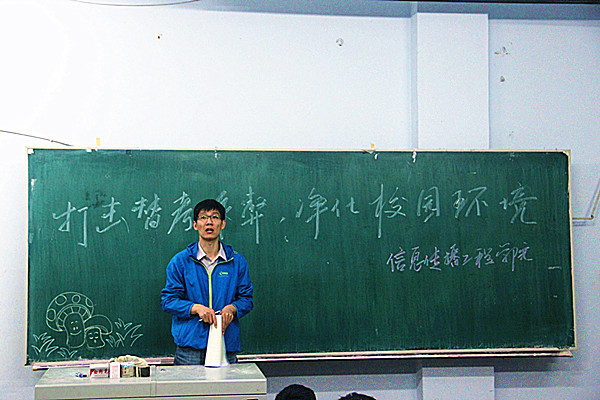 打击替考作弊,净化校园环境
信息传播工程学院